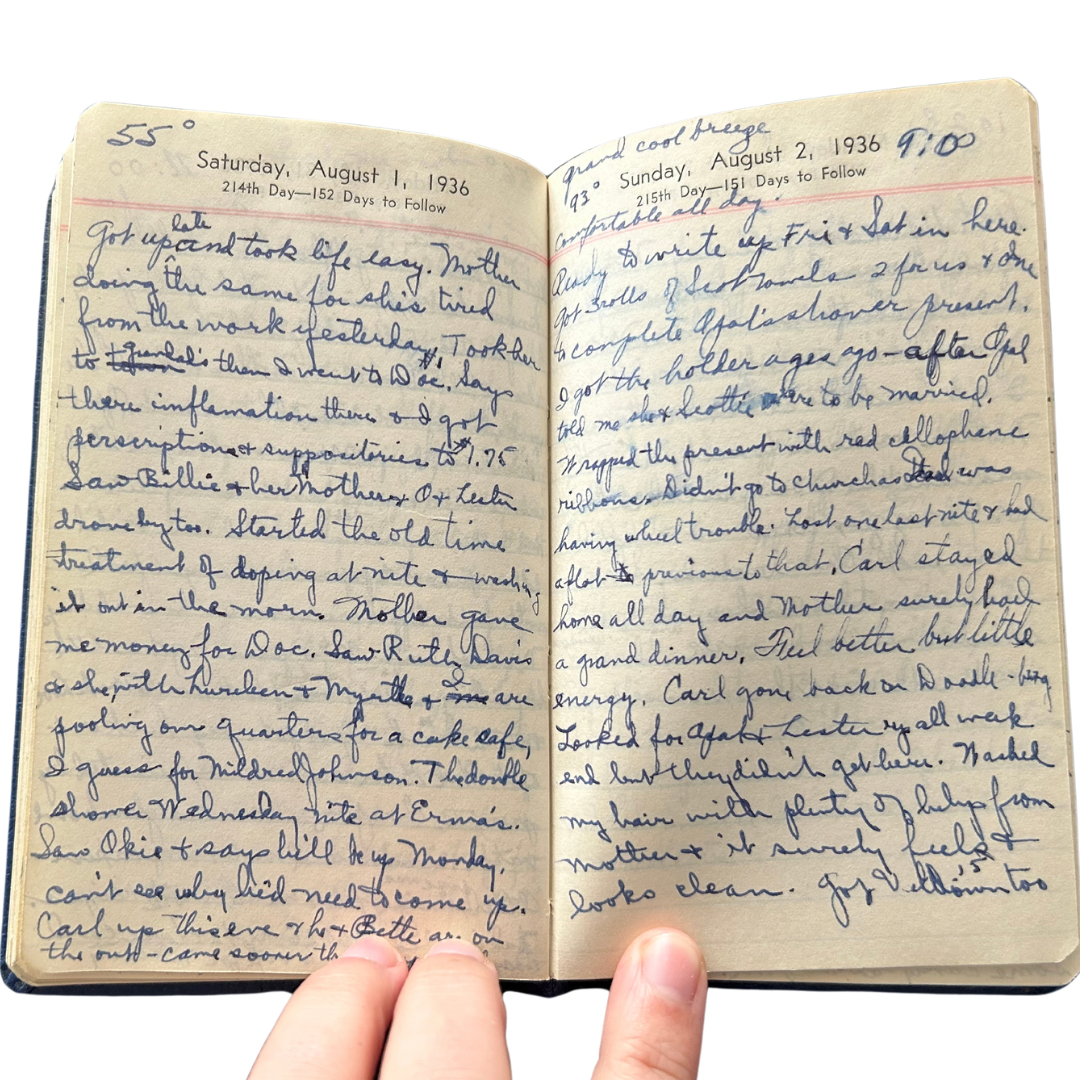 55°
Saturday, August 1, 1936
214th Day—152 Days to Follow
Got up late and took life easy. Mother
doing the same for she's tired
from the work yesterday. Took her
to then I went to Doc. Says
there inflamation there & I got
perscriptions & suppositories to $1.75
Saw Billie & her Mother & O & Lester
drove by too. Started the old time
treatment of doping at nite & washing
it out in the morn. Mother gave
me money for Doc. Saw Ruth Davis
& she, with Lureleen & Myrtle & I are
pooling our quarters for a cake safe,
I guess for Mildred Johnson. The double
shower Wednesday nite at Erma's.
Saw Okie & says he'll be up Monday,
can't see why he'd need to come up.
Carl up this eve & he & Bette are on
the outs - came sooner
grand cool breeze
Sunday, August 2, 1936 9:00
93° 215th Day—151 Days to Follow
Comfortable all day.
Ready to write up Fri & Sat in here.
Got 3 rolls of Scot towels 2 for us & one
to complete Opal's shower present.
I got the holder ages ago - after Opal
told me she & Scottie were to be married.
Wrapped the present with red cellophane
ribbons. Didn't go to church as was
having wheel trouble. Lost one last nite & had
a flat previous to that. Carl stayed
home all day and Mother surely had
a grand dinner. Feel better but little
energy. Carl gone back on Doodle-bug
Looked for Opal & Lester all week
end but they didn't get here. Washed
my hair with plenty of help from
mother & it surely feels &
looks clean. Got V down too